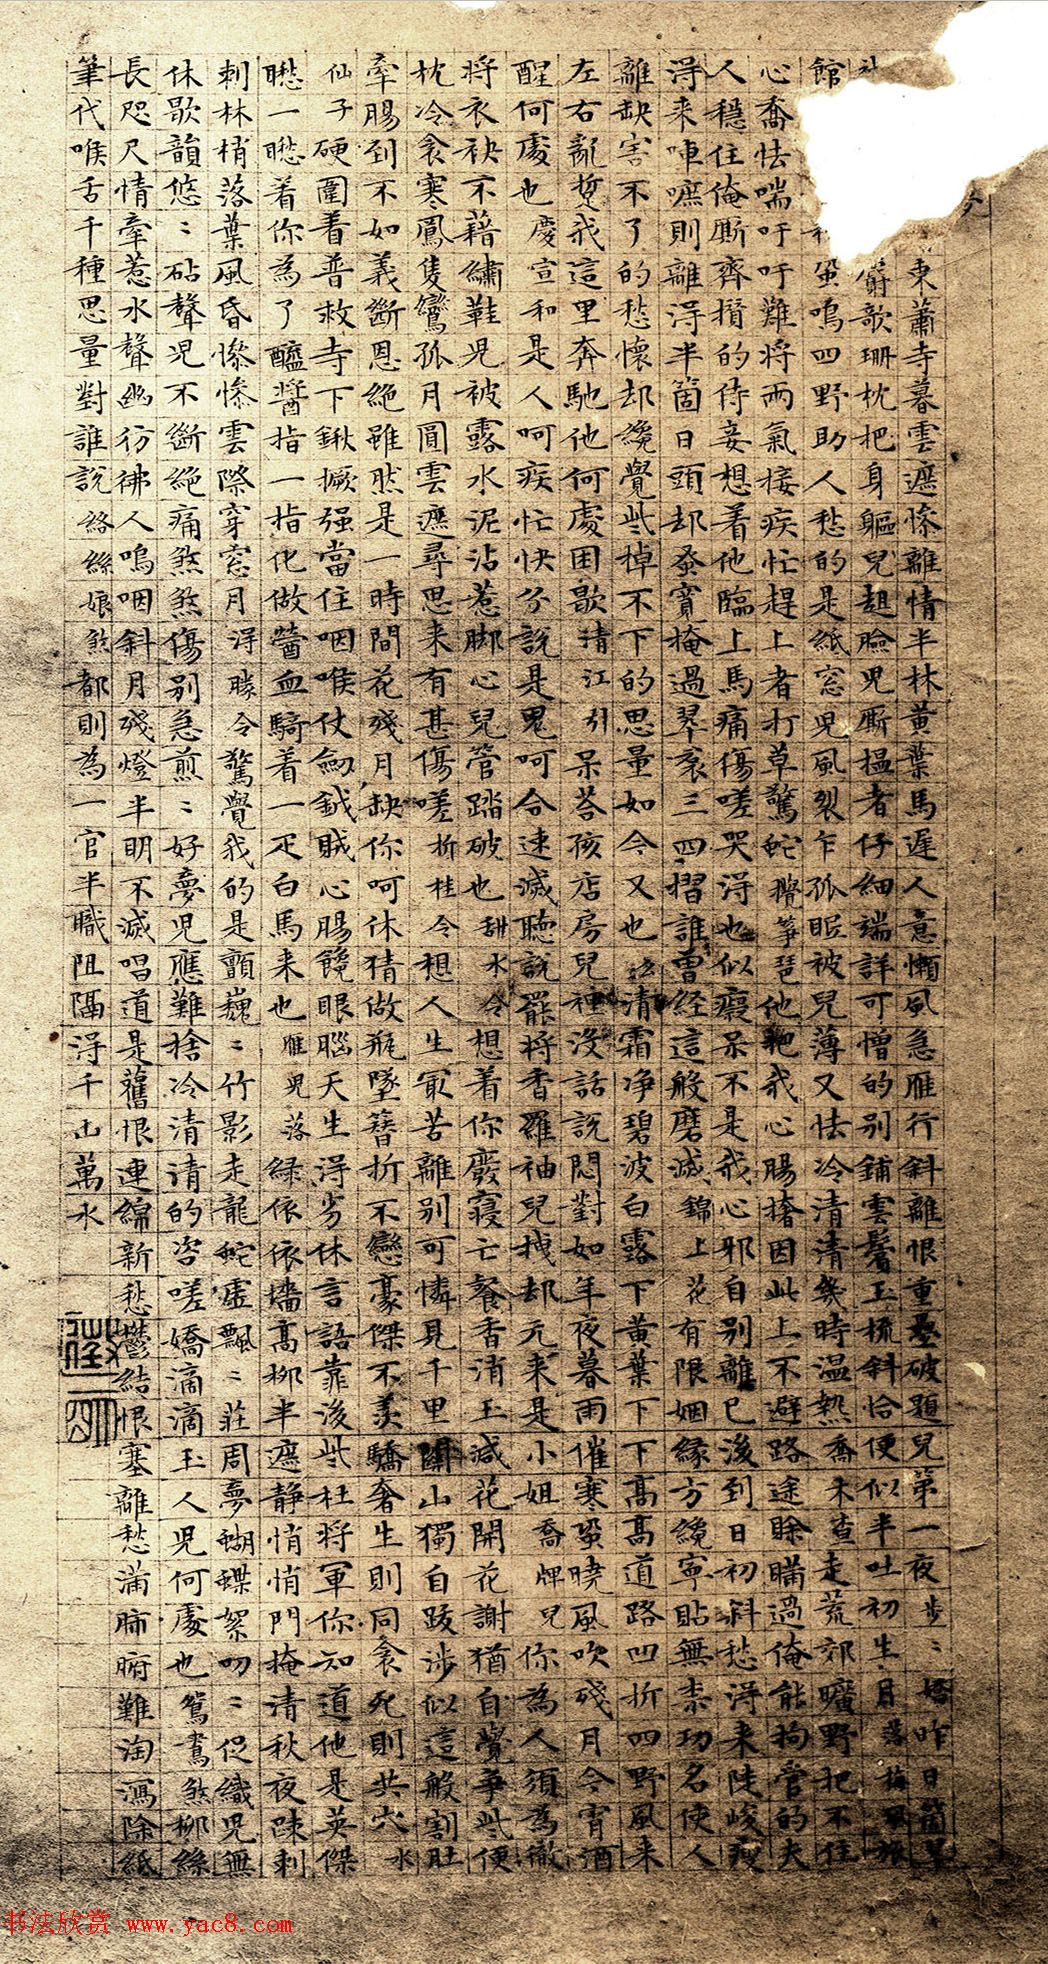 東蕭寺暮雲遮慘離情半林黃葉馬遲人意懶風急雁行斜離恨重疊破題兒第一夜 步〻嬌昨日箇翠
麝歌珊枕把身軀兒趄臉兒厮搵者仔細端詳可憎的別鋪雲鬢玉梳斜恰便似半吐初生月 落梅風旅
館 蛩鳴四野助人愁的是紙窓兒風裂乍孤眠被兒薄又怯冷清清幾時温熱 喬木查走荒郊曠野把不住
心喬怯喘吁吁難將兩氣接疾忙趕上者打草驚蛇 攪箏琶他把我心腸撦因此上不避路途賒瞞過俺能拘管的夫
人穩住俺厮齊攢的侍妾想着他臨上馬痛傷嗟哭淂也似癡呆不是我心邪自別離已後到日初斜愁淂来陡峻瘦
淂来啅嗻則離淂半箇日頭却蚤寬掩過翠裙三四摺誰曾經這般磨滅 錦上花有限姻緣方纔寧貼無柰功名使人
離缺害不了的愁懷却纔覺些掉不下的思量如今又也 么清霜净碧波白露下黄葉下下高高道路凹折四野風来
左右亂踅我這里奔馳他何處困歇 清江引呆荅孩店房兒裡没話說悶對如年夜暮雨催寒蛩曉風吹殘月今宵酒
醒何處也 慶宣和是人呵疾忙快分說是鬼呵合速滅聽說罷將香羅袖兒拽却元来是小姐 喬牌兒你為人須為徹
將衣袂不藉繡鞋兒被露水泥沾惹脚心兒管踏破也 甜水令想着你廢寢亡餐香消玉減花開花謝猶自覺爭些便
枕冷衾寒鳳隻鸞孤月圓雲遮尋思来有甚傷嗟 折桂令想人生最苦離別可憐見千里關山獨自跋涉似這般割肚
牽腸到不如義斷恩絕雖然是一時間花殘月缺你呵休猜做瓶墜簪折不戀豪傑不羡驕奢生則同衾死則共穴 水
仙子硬圍着普救寺下鍬撅强當住咽喉仗劍鉞賊心腸饞眼腦天生淂劣休言語靠後些杜將軍你知道他是英傑
聴一聴着你為了醯醬指一指化做䘕血騎着一疋白馬来也 雁兒落綠依依墻高柳半遮静悄悄門掩清秋夜踈剌
剌林梢落葉風昏慘慘雲際穿窓月 淂勝令驚覺我的是顫巍〻竹影走龍蛇虛飄〻莊周夢蝴蝶絮叨〻促織兒無
休歇韻悠〻砧聲兒不斷絕痛煞煞傷別急煎〻好夢兒應難捨冷清清的咨嗟嬌滴滴玉人兒何處也 鴛鴦煞柳絲
長咫尺情牽惹水聲幽彷彿人嗚咽斜月殘燈半明不滅唱道是舊恨連綿新愁鬱結恨塞離愁滿肺腑難淘瀉除紙
筆代喉舌千種思量對誰說 絡絲娘煞都則為一官半職阻隔淂千山萬水
书法欣赏 www.yac8.com